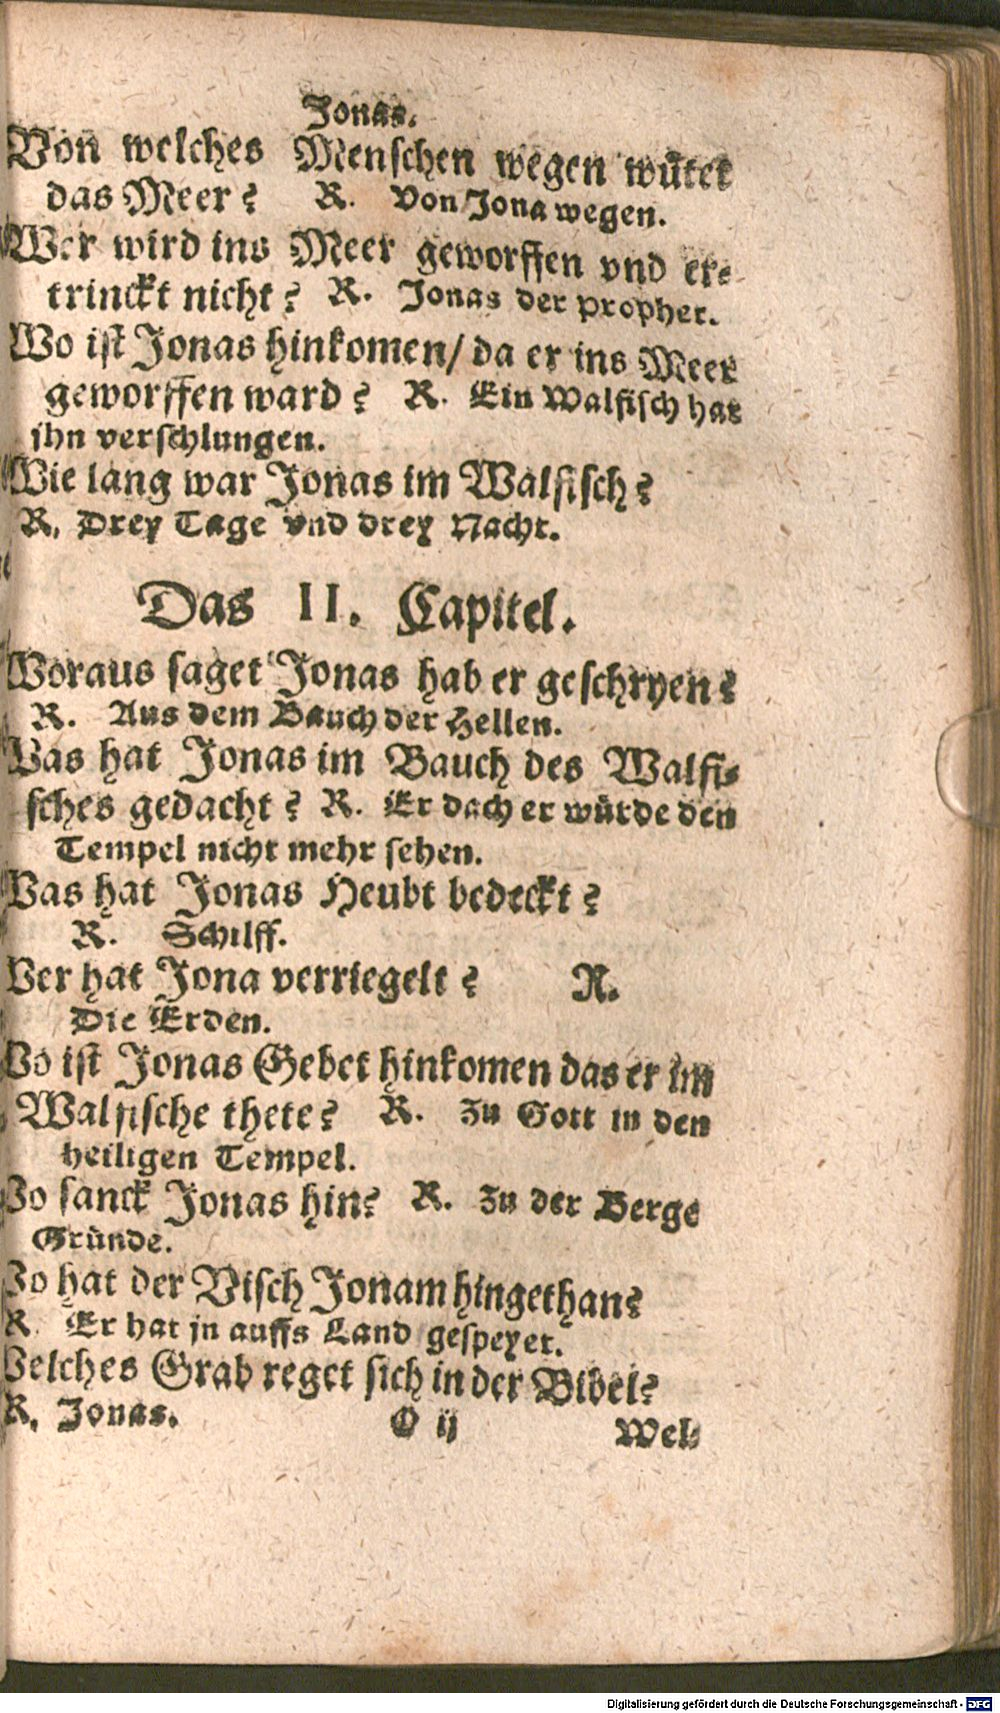 Jonas.
Von welches Menschen wegen wütet
das Meer? R. Von Jona wegen.
Wer wird ins Meer geworffen vnd er-
trinckt nicht? R. Jonas der prophet.
Wo ist Jonas hinkomen/ da er ins Meer
geworffen ward? R. Ein Walfisch hat
ihn verschlungen.
Wie lang war Jonas im Walfisch?
R. Drey Tage vnd drey Nacht.
Das II. Capitel.
Woraus saget Jonas hab er geschryen?
R. Aus dem Bauch der Hellen.
Was hat Jonas im Bauch des Walfi-
sches gedacht? R. Er dach er würde den
Tempel nicht mehr sehen.
Was hat Jonas Heubt bedeckt?
R. Schilff.
Wer hat Jona verriegelt? R.
Die Erden.
Wo ist Jonas Gebet hinkomen das er im
Walfische thete? R. Zu Gott in den
heiligen Tempel.
Wo sanck Jonas hin? R. Zu der Berge
Gründe.
Wo hat der Visch Jonam hingethan?
R. Er hat jn auffs Land gespeyet.
Welches Grab reget sich in der Bibel?
R. Jonas.
O ij
Wel-
Digitalisierung gefördert durch die Deutsche Forschungsgemeinschaft - DFG